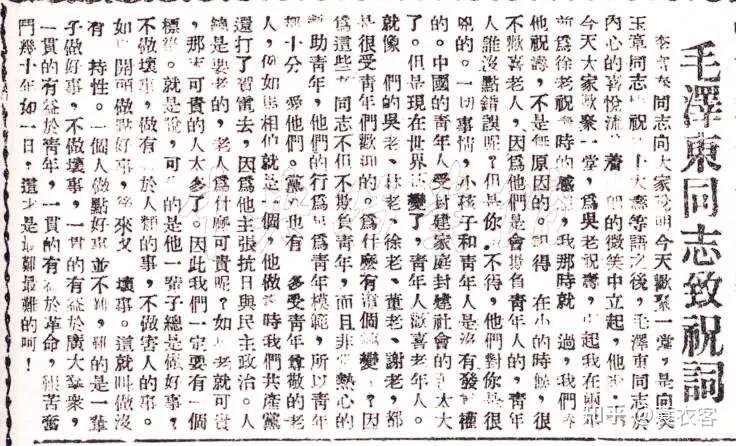 毛澤東同志致祝詞
李富春同志向大家說明今天歡聚一堂，是向吳
玉章同志 祝六十大壽等語之後，毛澤東同志以
內心的喜悅流 着 般的微笑中立起，他說：
今天大家歡聚一堂，爲吳老祝壽， 起我在兩年
前爲徐老祝壽時的感想，我那時就 過，我們爲
他祝壽，不是無原因的。記得 在小的時候，很
不歡喜老人，因爲他們是會欺負青年人的，青年
人誰沒點錯誤呢？但是你 不得，他們對你是很
兇的。一切事情，小孩子和青年人是沒有發言權
的。中國的青年人受封建家庭封建社會的 太大
了。但是現在世界 變了，青年人歡喜老年人。
就像 們的吳老、林老、徐老、董老、謝老，都
是很受青年們歡迎的。爲什麼有這個 變 ？因
爲這些 同志不但不欺負青年，而且非常熱心的
幫助青年，他們的行爲足爲青年模範，所以青年
都十分 愛他們。黨 也有 多受青年尊敬的老
人，例如馬相伯就是一個，他做壽時我們共產黨
還打了賀電去，因爲他主張抗日與民主政治。人
總是要老的，老人爲什麼可貴呢？如 老就可貴
，那 可貴的人太多了。因此我們一定要有一個
標準。就是說，可 的是他一輩子總是做好事，
不做壞事，做有 於人類的事，不做害人的事。
如 開頭做點好事，後來又 壞事。這就叫做沒
有 持性。一個人做點好事並不難，難的是一輩
子做好事，不做壞事，一貫的有益於廣大羣衆，
一貫的有益於青年，一貫的有益於革命，艱苦奮
鬥幾十年如一日，這才是最難最難的呵！
知乎 @蓑衣客